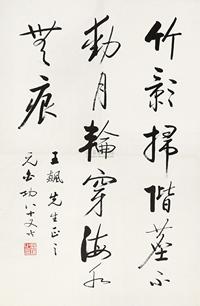 竹影掃階塵不
動月輪穿海水
無痕
王飆先生正之
元白功八十又六